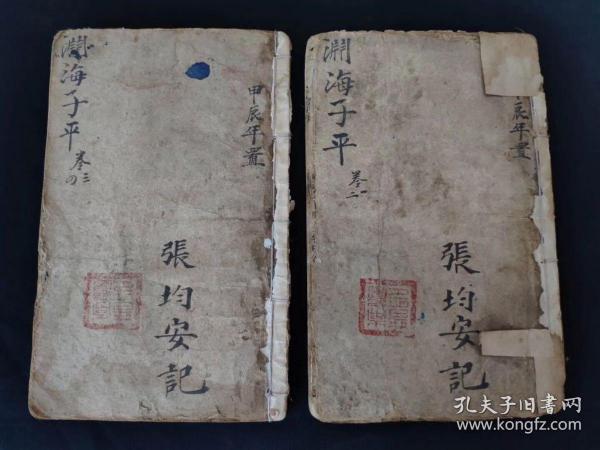 淵海子平
卷三
四
甲辰年置
張均安記
淵海子平
卷一
二
辰年置
張均安記
孔夫子旧书网
www.kongfz.com